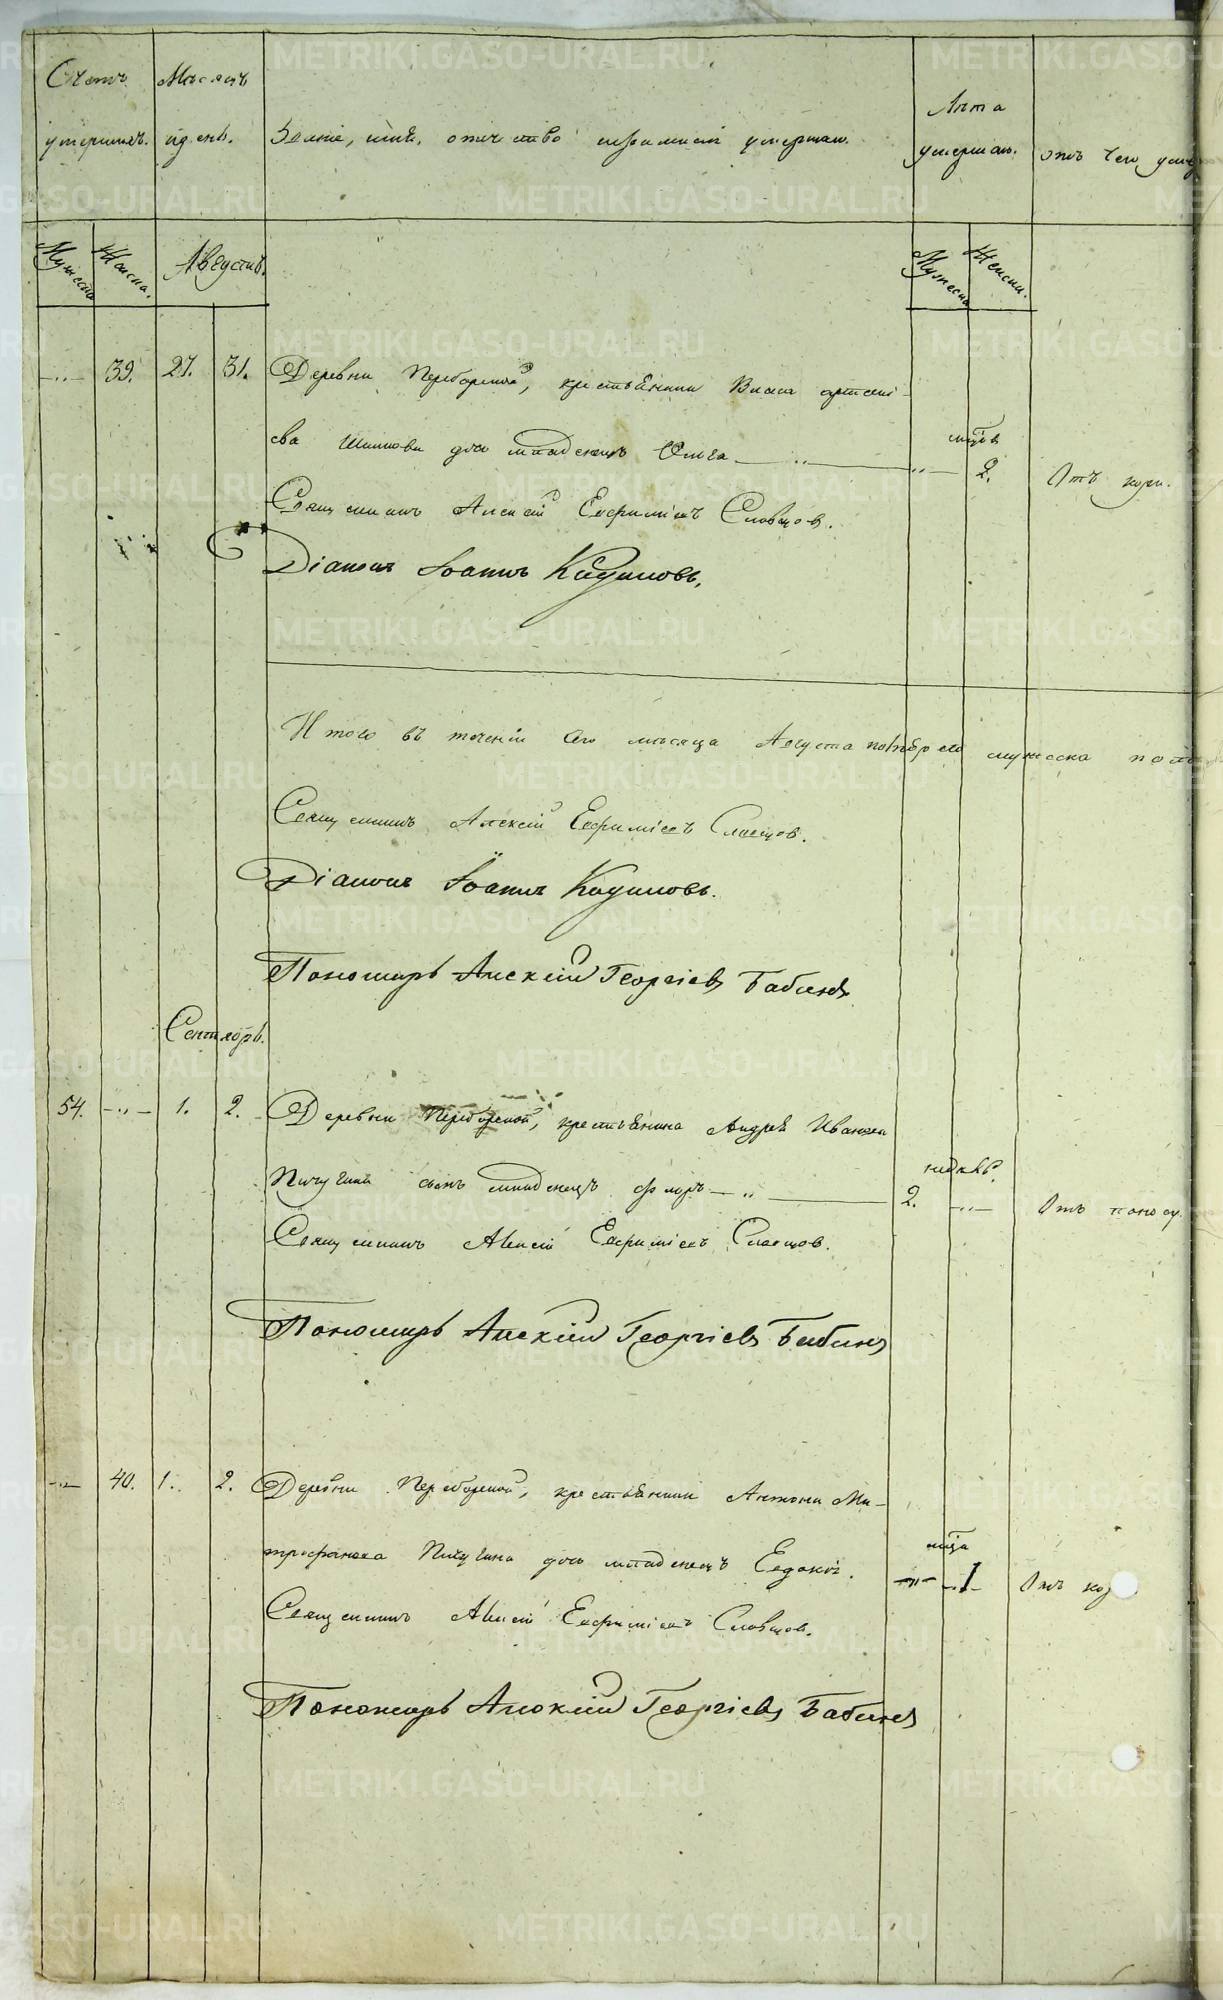 Счетъ умершихъ.
Мѣсяцъ и день.
Званіе, имя, отчество и фамилія умершаго.
Лѣта умершаго.
Отъ чего умер
Мужеска
Женска.
Августъ.
Мужеска
Женска.
39. 27. 31. Деревни Переборской, крестьянина Власа Артемі-
ева Шилкова дочь младенецъ Ольга
2. Отъ кори.
Священникъ Алексій Евфиміевъ Словцов.
Діаконъ Іоаннъ Кадиловъ.
Итого въ теченіи сего мѣсяца Августа мужеска пола
Священникъ Алексій Евфиміевъ Словцов.
Діаконъ Іоаннъ Кадиловъ.
Пономарь Алексій Георгіевъ Бабинъ
Сентябрь.
54. 1. 2. Деревни Переборской, крестьянина Андрея Иванова
Пичугина сынъ младенецъ Флоръ
недѣль
2. Отъ поносу.
Священникъ Алексій Евфиміевъ Словцов.
Пономарь Алексій Георгіевъ Бабинъ
40. 1. 2. Деревни Переборской, крестьянина Антона Ми-
трофанова Пичугина дочь младенецъ Евдокія.
1 Отъ
Священникъ Алексій Евфиміевъ Словцов.
Пономарь Алексій Георгіевъ Бабинъ
METRIKI.GASO-URAL.RU